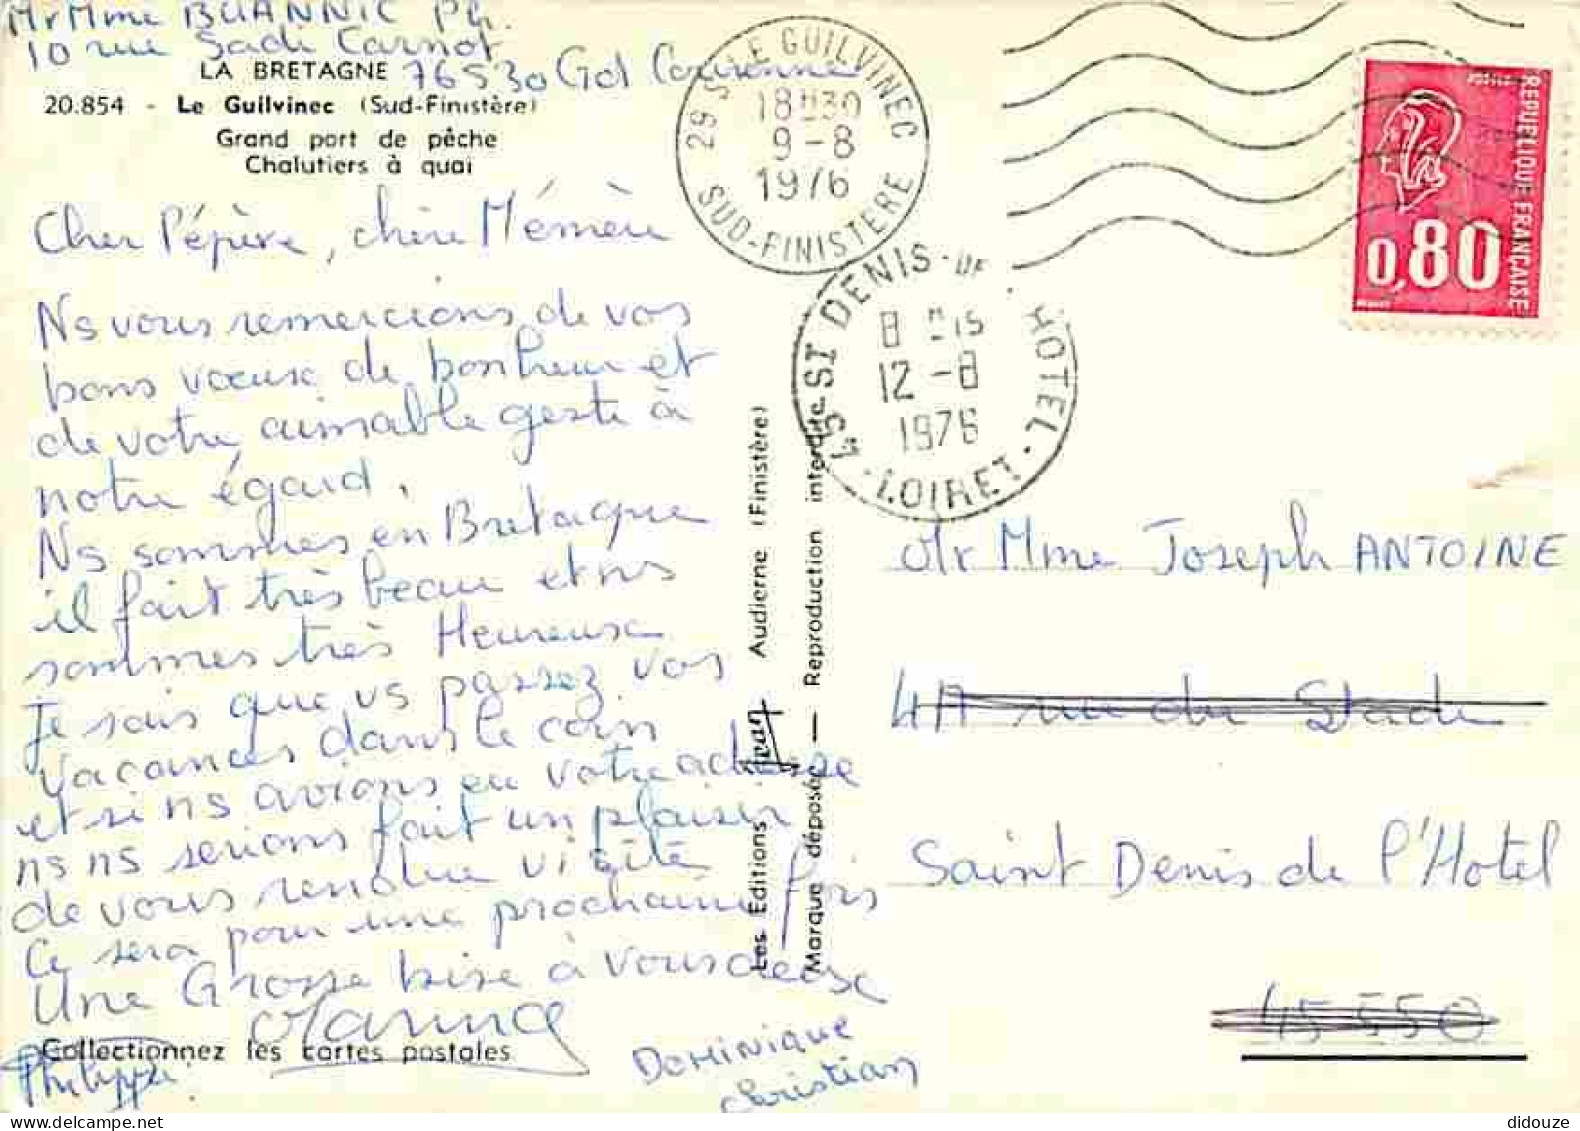 Mr Mme BUANNIC Ph.
10 rue Sadi Carnot
76530 Gd Couronne
LA BRETAGNE
20.854 - Le Guilvinec (Sud-Finistère)
Grand port de pêche
Chalutiers à quai
Cher Pépère, chère Mémère
Ns vous remercions de vos
bons vœux de bonheur et
de votre aimable geste à
notre égard.
Ns sommes en Bretagne
il fait très beau et ns
sommes très Heureuse
Je sais que vs passez vos
vacances dans le coin
et si ns avions eu votre adresse
ns ns serions fait un plaisir
de vous rendre visite
Ce sera pour une prochaine fois
Une Grosse bise à vous deux
Philippe
Dominique
Christian
Collectionnez les cartes postales
Les Editions Audierne (Finistère)
Marque déposée — Reproduction interdite
29 S LE GUILVINEC
18H30
9-8
1976
SUD-FINISTERE
45 ST DENIS-DE L'HOTEL
8H15
12-8
1976
LOIRET
REPUBLIQUE FRANÇAISE
0,80
Mr Mme Joseph ANTOINE
47 rue du Stade
Saint Denis de l'Hotel
45550
didouze